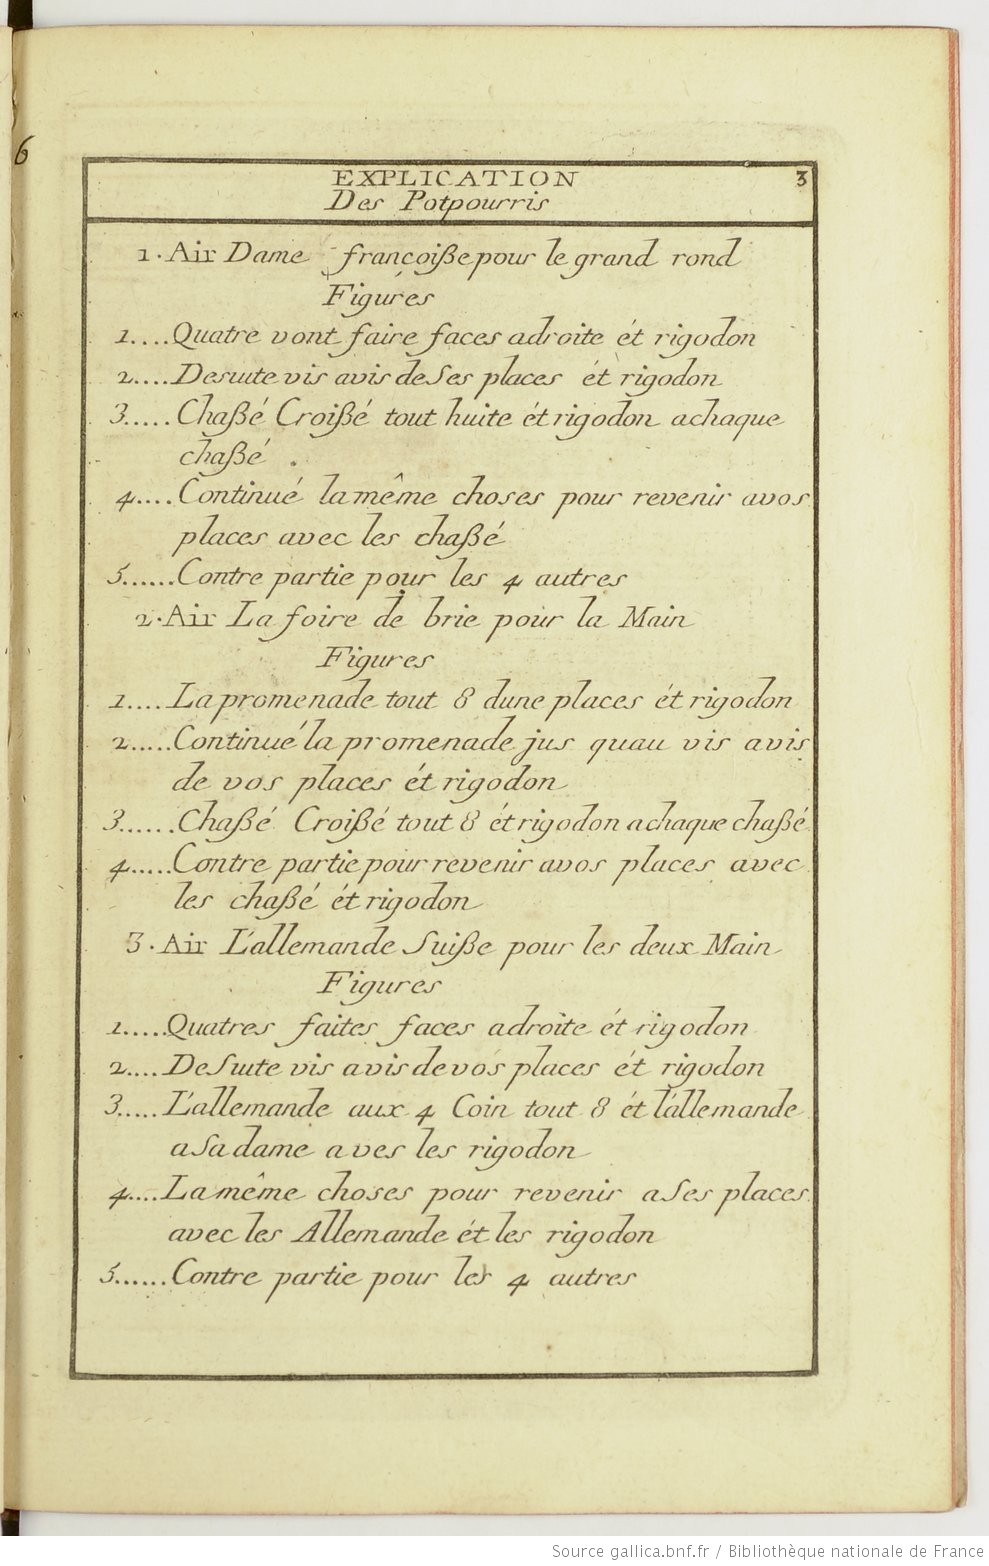 6
EXPLICATION 3
Des Potpourris
1. Air Dame françoiße pour le grand rond
Figures
1....Quatre vont faire faces adroite ét rigodon
2....Desuite vis avis de Ses places ét rigodon
3.....Chaßé Croißé tout huite ét rigodon achaque
chaßé
4....Continué la même choses pour revenir avos
places avec les chaßé
5......Contre partie pour les 4 autres
2. Air La foire de brie pour la Main
Figures
1....La promenade tout 8 dune places ét rigodon
2.....Continué la promenade jus quau vis avis
de vos places ét rigodon
3......Chaßé Croißé tout 8 ét rigodon achaque chaßé
4.....Contre partie pour revenir avos places avec
les chaßé ét rigodon
3. Air L'allemande Suiße pour les deux Main
Figures
1.....Quatres faites faces adroite ét rigodon
2....De Suite vis avis de vos places ét rigodon
3.....L'allemande aux 4 Coin tout 8 ét l'allemande
a Sa dame aves les rigodon
4....La même choses pour revenir a Ses places
avec les Allemande ét les rigodon
5......Contre partie pour les 4 autres
Source gallica.bnf.fr / Bibliothèque nationale de France